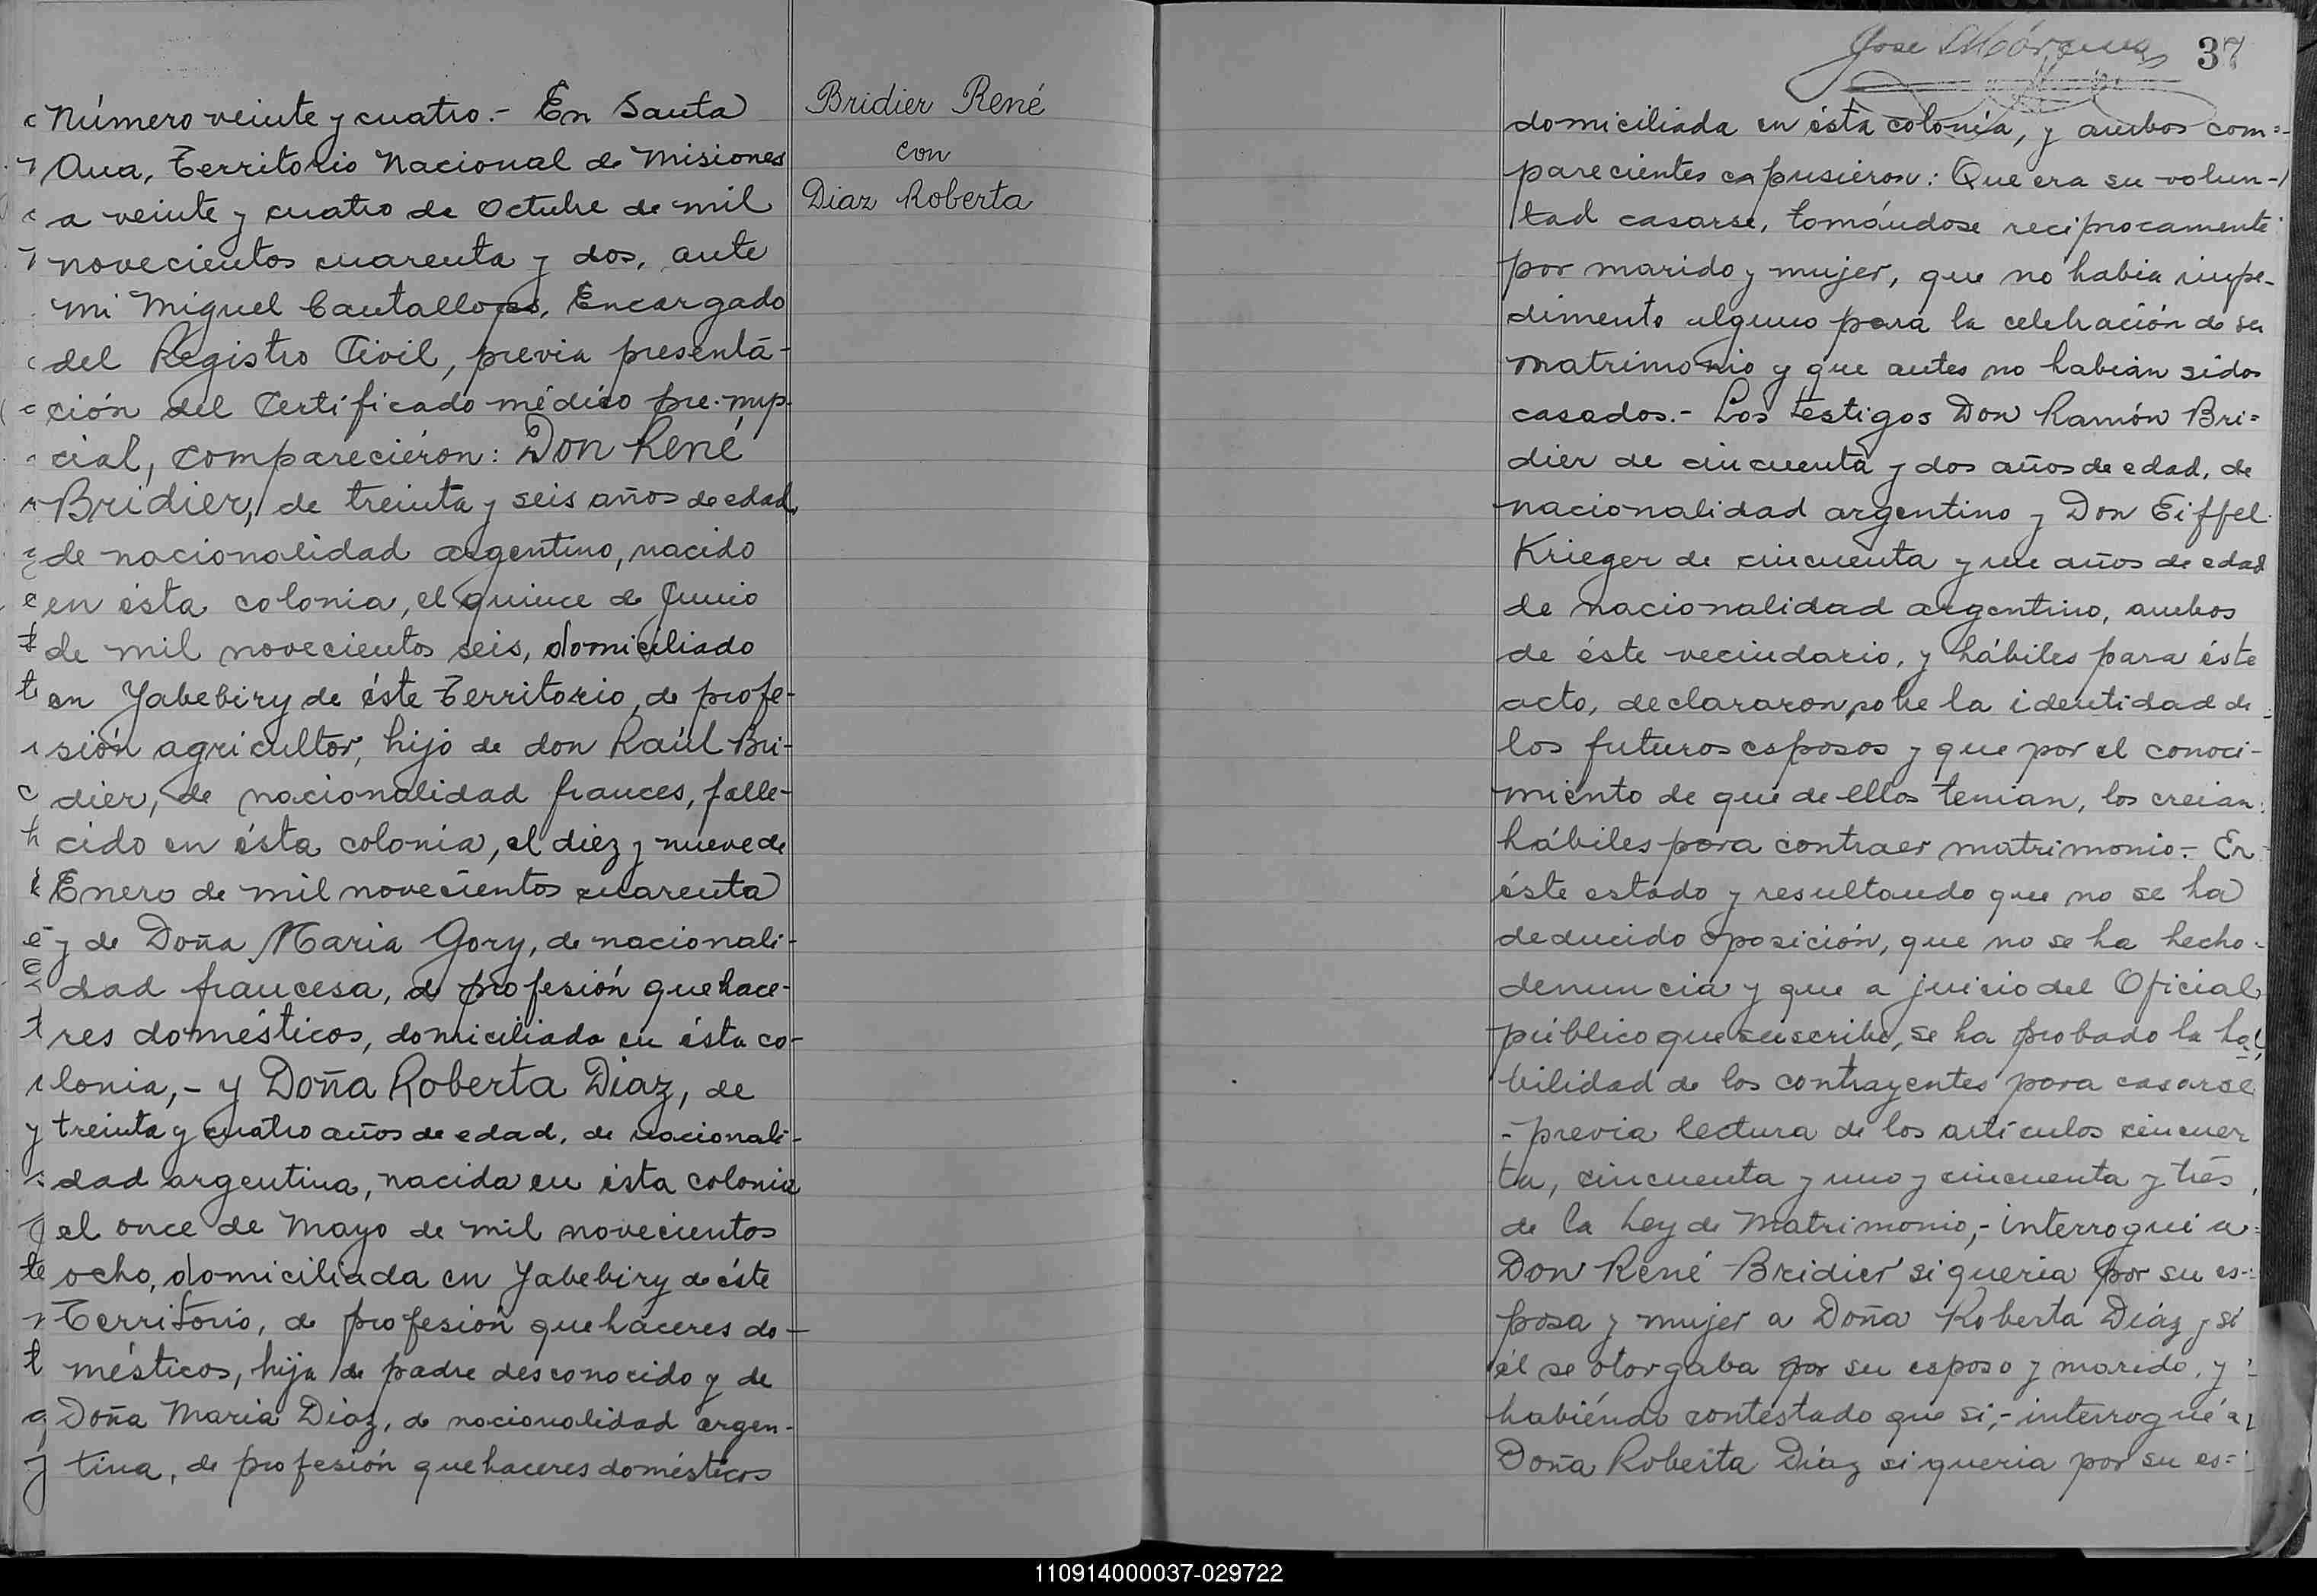 Número veinte y cuatro.- En Santa
Ana, Territorio Nacional de Misiones
a veinte y cuatro de Octubre de mil
novecientos cuarenta y dos, ante
mi Miguel Cantallops, Encargado
del Registro Civil, previa presentá-
ción del Certificado médico pre-nup-
cial, comparecierón: Don René
Bridier, de treinta y seis años de edad,
de nacionalidad argentino, nacido
en ésta colonia, el quince de Junio
de mil novecientos seis, domiciliado
en Yabebiry de éste Territorio, de profe-
sión agricultor, hijo de don Raúl Bri-
dier, de nacionalidad frances, falle-
cido en ésta colonia, el diez y nueve de
Enero de mil novecientos cuarenta
y de Doña Maria Gory, de nacionali-
dad francesa, de profesión quehace-
res domésticos, domiciliada en ésta co-
lonia,- y Doña Roberta Diaz, de
treinta y cuatro años de edad, de nacionali-
dad argentina, nacida en ésta colonia
el once de Mayo de mil novecientos
ocho, domiciliada en Yabebiry de éste
Territorio, de profesión quehaceres do-
mésticos, hija de padre desconocido y de
Doña Maria Diaz, de nacionalidad argen-
tina, de profesión quehaceres domésticos
Bridier René
con
Diaz Roberta
37
domiciliada en ésta colonia, y ambos com=
parecientes expusieron: Que era su volun-
tad casarse, tomándose reciprocamente
por marido y mujer, que no habia impe-
dimento alguno para la celebración de su
matrimonio y que antes no habian sidos
casados.- Los testigos Don Ramón Bri=
dier de cincuenta y dos años de edad, de
nacionalidad argentino y Don Eiffel
Krieger de cincuenta y un años de edad
de nacionalidad argentino, ambos
de éste vecindario, y hábiles para éste
acto, declararon sobre la identidad de
los futuros esposos y que por el conoci-
miento de que de ellos tenian, los creian
hábiles para contraer matrimonio.- En
éste estado y resultando que no se ha
deducido oposición, que no se ha hecho
denuncia y que a juicio del Oficial
público que suscribe, se ha probado la ha-
bilidad de los contrayentes para casarse
-previa lectura de los artículos cincuen
ta, cincuenta y uno y cincuenta y tres
de la Ley de Matrimonio,- interrogué a
Don René Bridier si queria por su es-
posa y mujer a Doña Roberta Diaz y si
él se otorgaba por su esposo y marido, y
habiéndo contestado que si,- interrogué a
Doña Roberta Diaz si queria por su es=
110914000037-029722